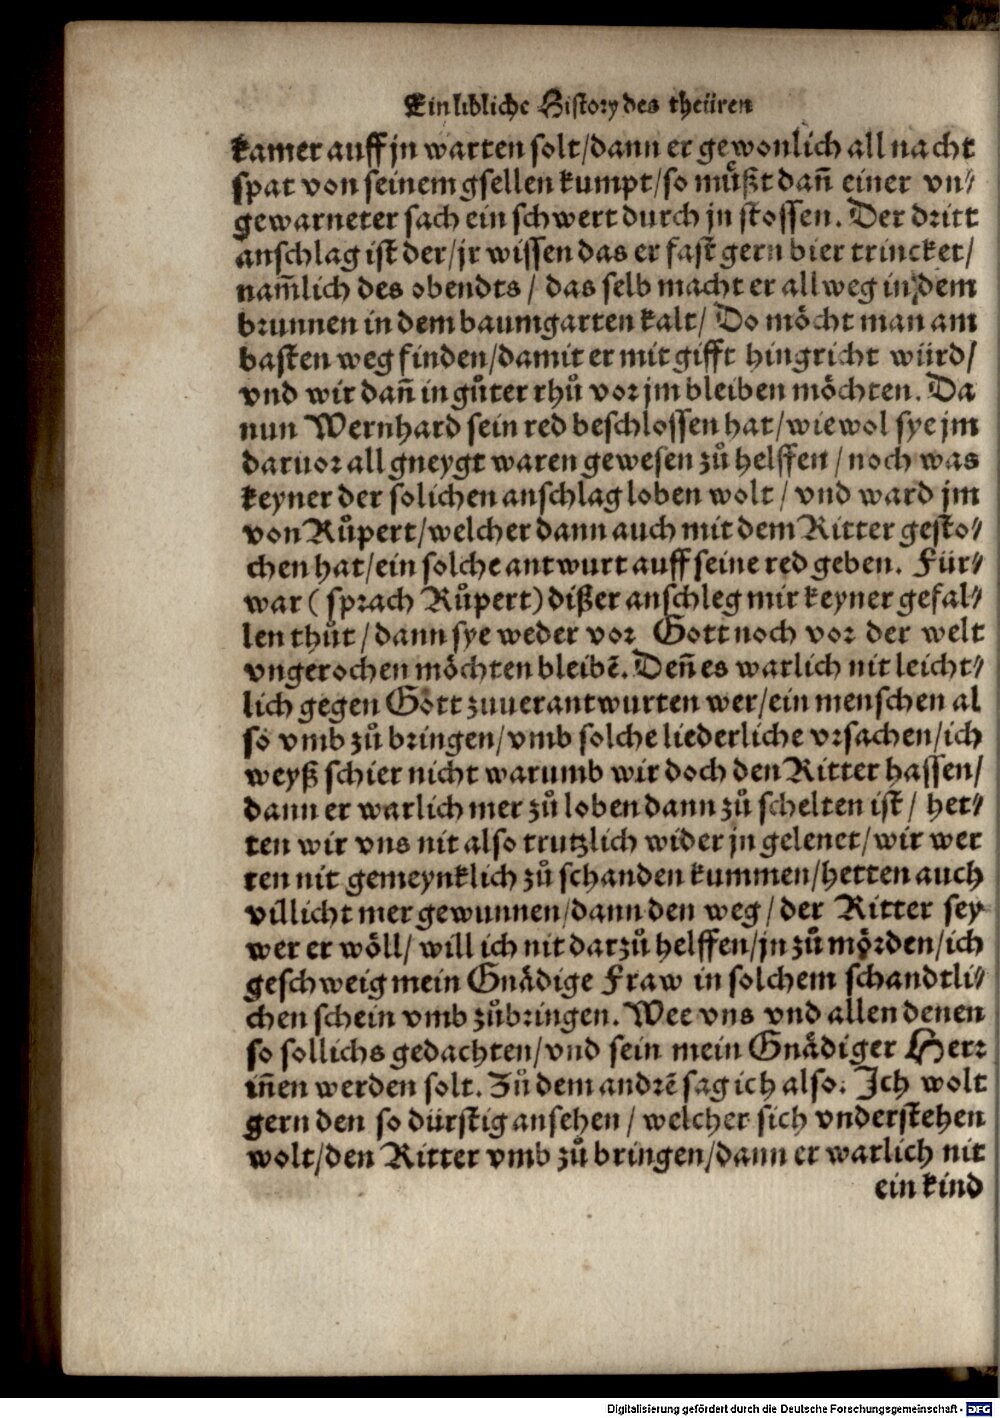 Ein libliche History des theüren
kamer auff jn warten solt/dann er gewonlich all nacht
spat von seinem gsellen kumpt/so můßt dañ einer vn⸗
gewarneter sach ein schwert durch jn stossen. Der dritt
anschlag ist der/jr wissen das er fast gern bier trincket/
nam̃lich des obendts / das selb macht er allweg in dem
brunnen in dem baumgarten kalt/ Do mo̊cht man am
basten weg finden/damit er mit gifft hingricht würd/
vnd wir dañ in gůter rhů vor jm bleiben mo̊chten. Da
nun Wernhard sein red beschlossen hat/wiewol sye jm
daruor all gneygt waren gewesen zů helffen / noch was
keyner der solichen anschlag loben wolt / vnd ward jm
von Růpert/welcher dann auch mit dem Ritter gesto⸗
chen hat/ein solche antwurt auff seine red geben. Für⸗
war ( sprach Růpert) dißer anschleg mir keyner gefal⸗
len thůt / dann sye weder vor Gott noch vor der welt
vngerochen mo̊chten bleibẽ. Deñ es warlich nit leicht⸗
lich gegen Gott zuuerantwurten wer/ein menschen al
so vmb zů bringen/vmb solche liederliche vrsachen/ich
weyß schier nicht warumb wir doch den Ritter hassen/
dann er warlich mer zů loben dann zů schelten ist / het⸗
ten wir vns nit also trutzlich wider jn gelenet/wir wer
ren nit gemeynklich zů schanden kummen/hetten auch
villicht mer gewunnen/dann den weg / der Ritter sey
wer er wo̊ll/ will ich nit darzů helffen/jn zů mo̊rden/ich
geschweig mein Gnådige Fraw in solchem schandtli⸗
chen schein vmb zůbringen. Wee vns vnd allen denen
so sollichs gedachten/vnd sein mein Gnådiger Herr
iñen werden solt. Zů dem andrẽ sag ich also. Ich wolt
gern den so dürstig ansehen / welcher sich vnderstehen
wolt/den Ritter vmb zů bringen/dann er warlich nit
ein kind
Digitalisierung gefördert durch die Deutsche Forschungsgemeinschaft - DFG